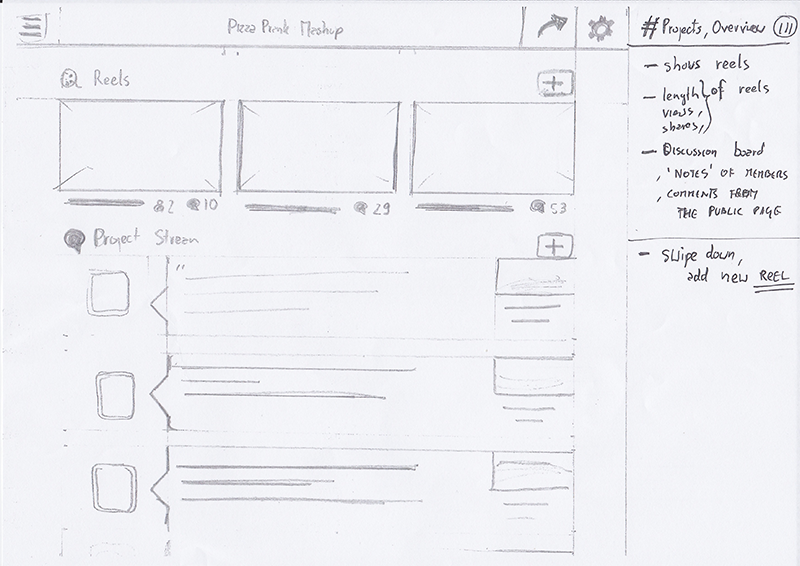 Pizza Prank Mashup
Reels
2 10
29
53
Project Stream
"
# Projects, Overview III
– shows reels
– length of reels
views,
shares,
– Discussion board
, 'NOTES' OF MEMBERS
, COMMENTS FROM
THE PUBLIC PAGE
– Swipe down,
add new REEL